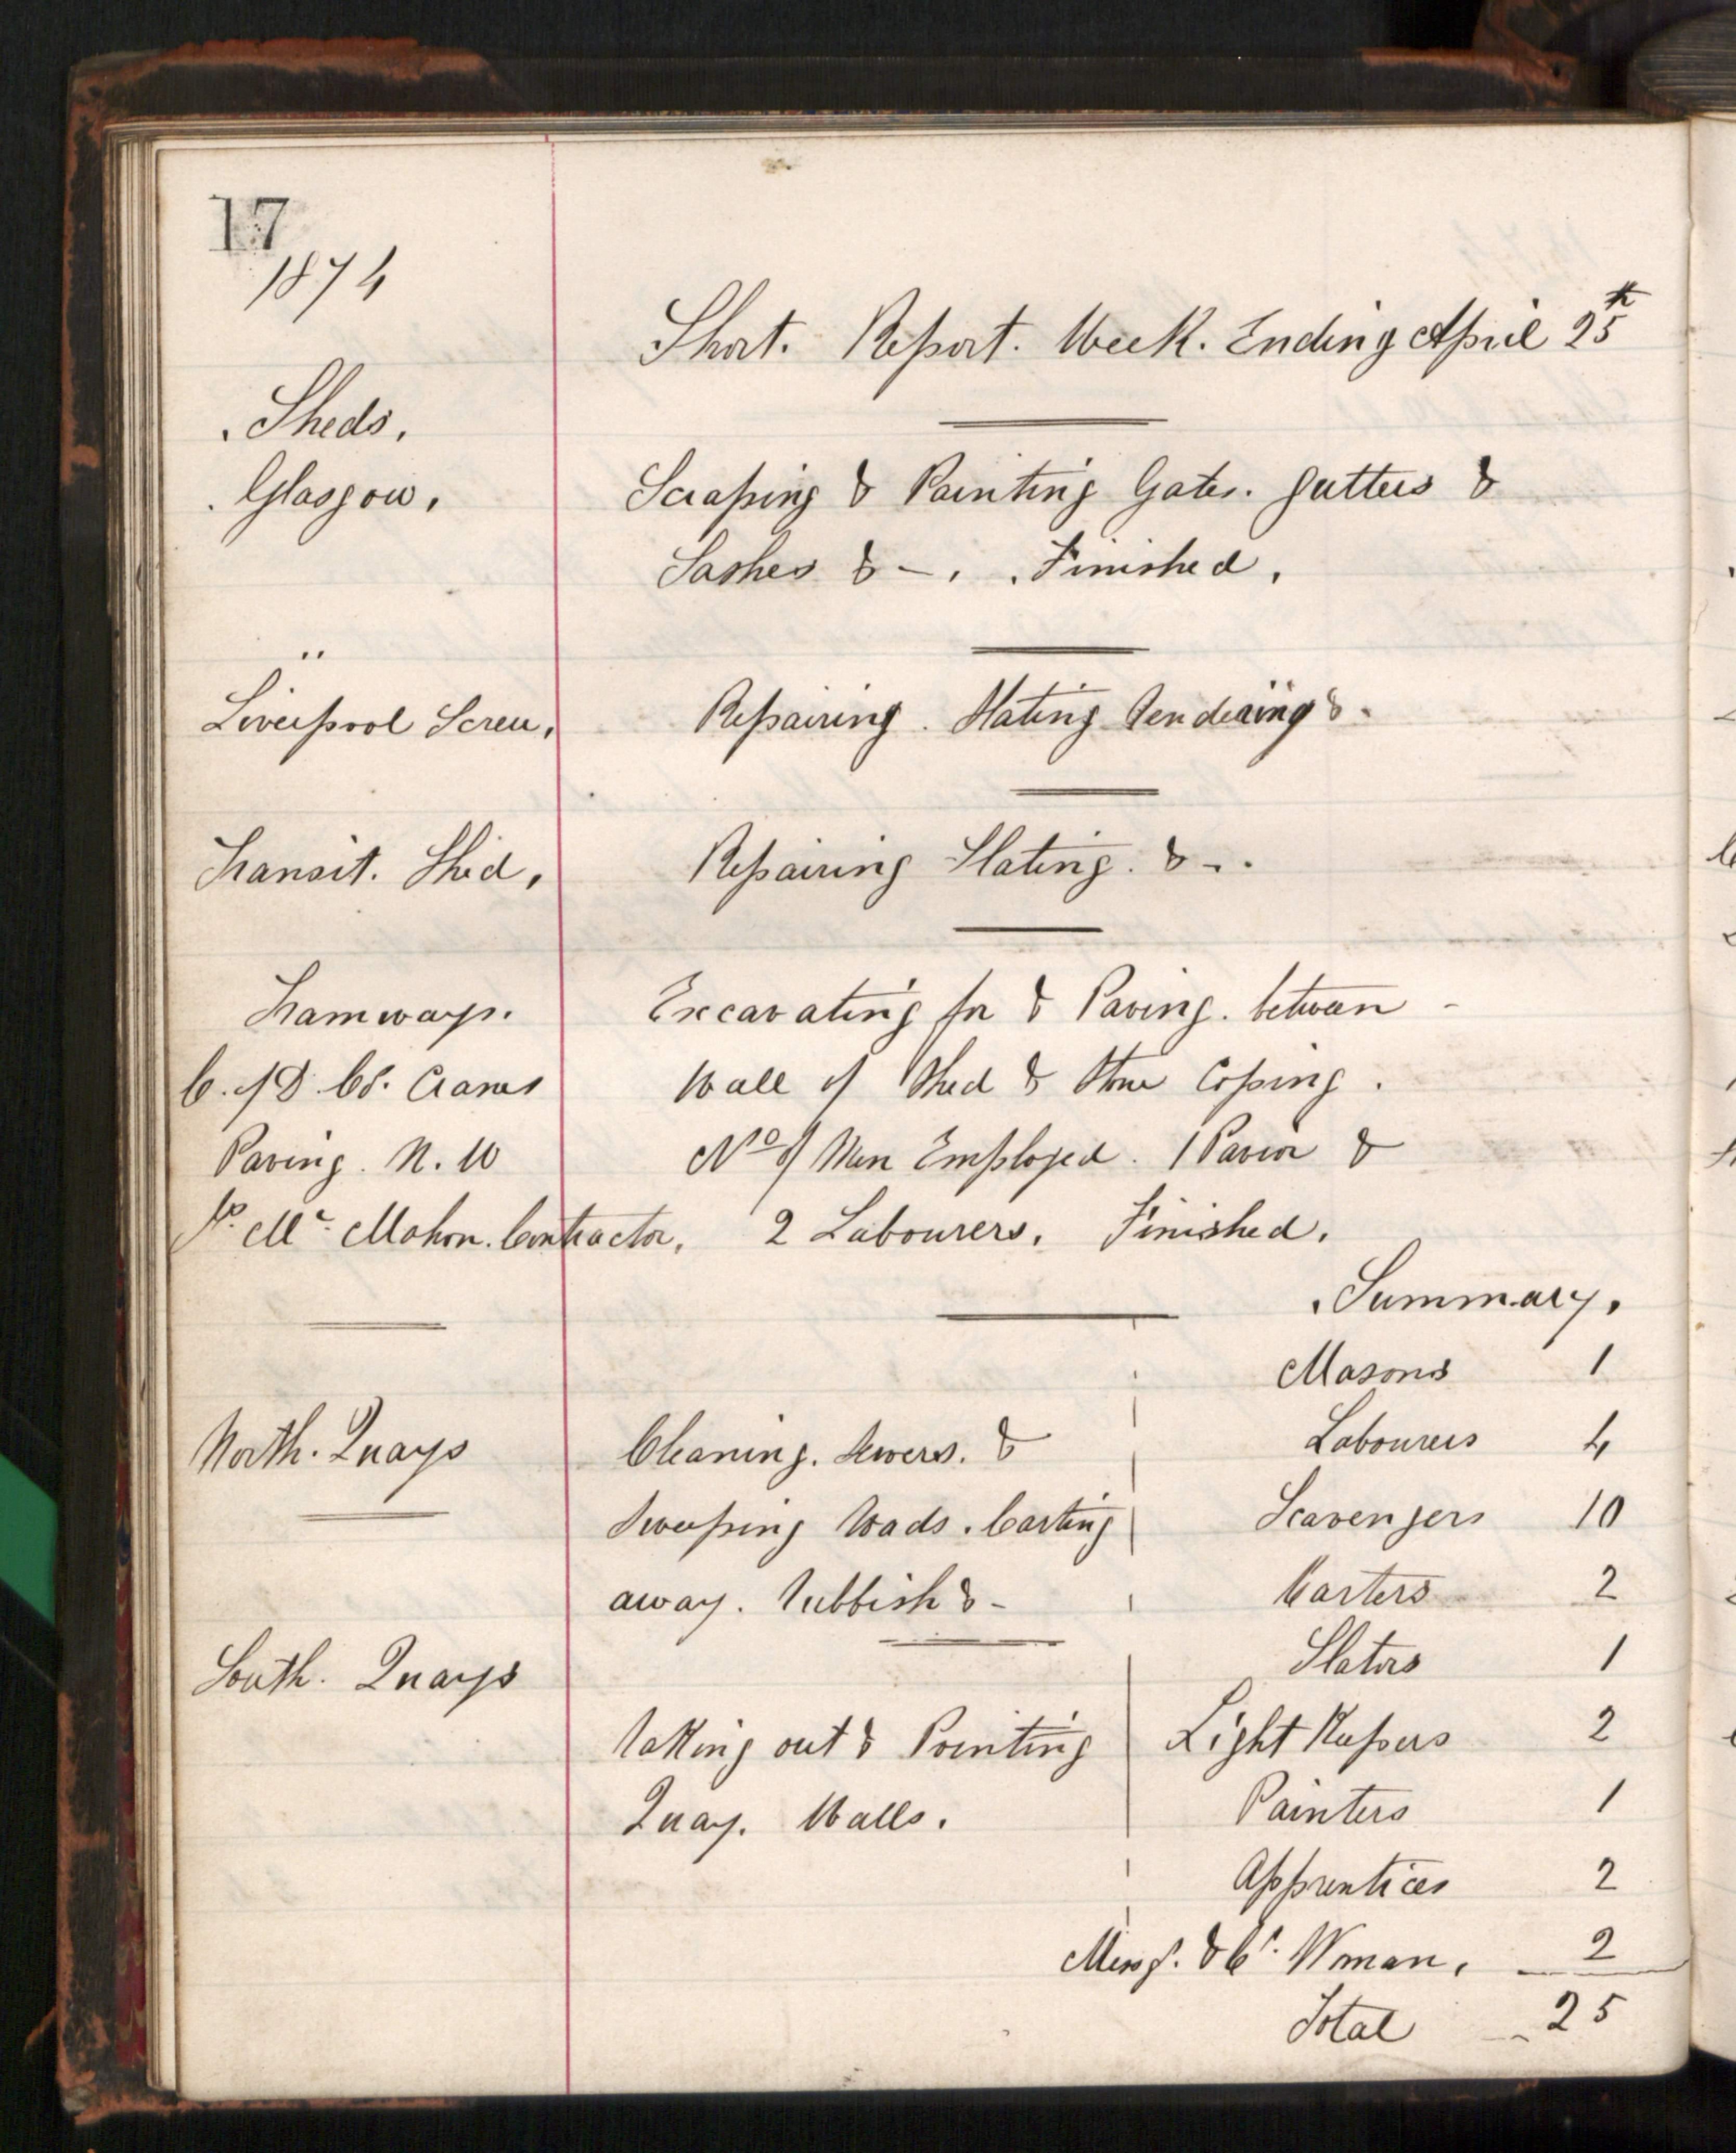 17
1874
Short. Report. Week. Ending April 25th
Sheds.
Glasgow.
Scraping & Painting Gates. Gutters &
Sashes &-. Finished.
"
Liverpool Screw.
Repairing. Slating Rendering &-
Transit. Shed.
Repairing Slating. &-.
Tramways.
Excavating for & Paving. between -
C. of D. Co. Cranes
Wall of Shed & Stone Coping.
Paving. N. W
No of Men Employed. 1 Pavior &
Mc Mahon. Contractor.
2 Labourers. Finished.
Summary.
Masons 1
North. Quays
Cleaning. Sewers. &
Labourers 4
Sweeping Roads. Carting
Scavengers 10
away. Rubbish &-
Carters 2
South. Quays
Slaters 1
Raking out & Pointing
Light Keepers 2
Quay. Walls.
Painters 1
Apprentices 2
Mesgr. & Cg. Woman. 2
Total 25